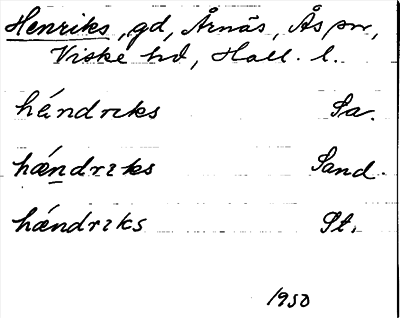 Henriks, gd, Årnäs, Ås sn,
Viske hd, Hall. l.
héndrɩks Sa.
hǽndrɩks Sand.
héndrɩks St.
1950